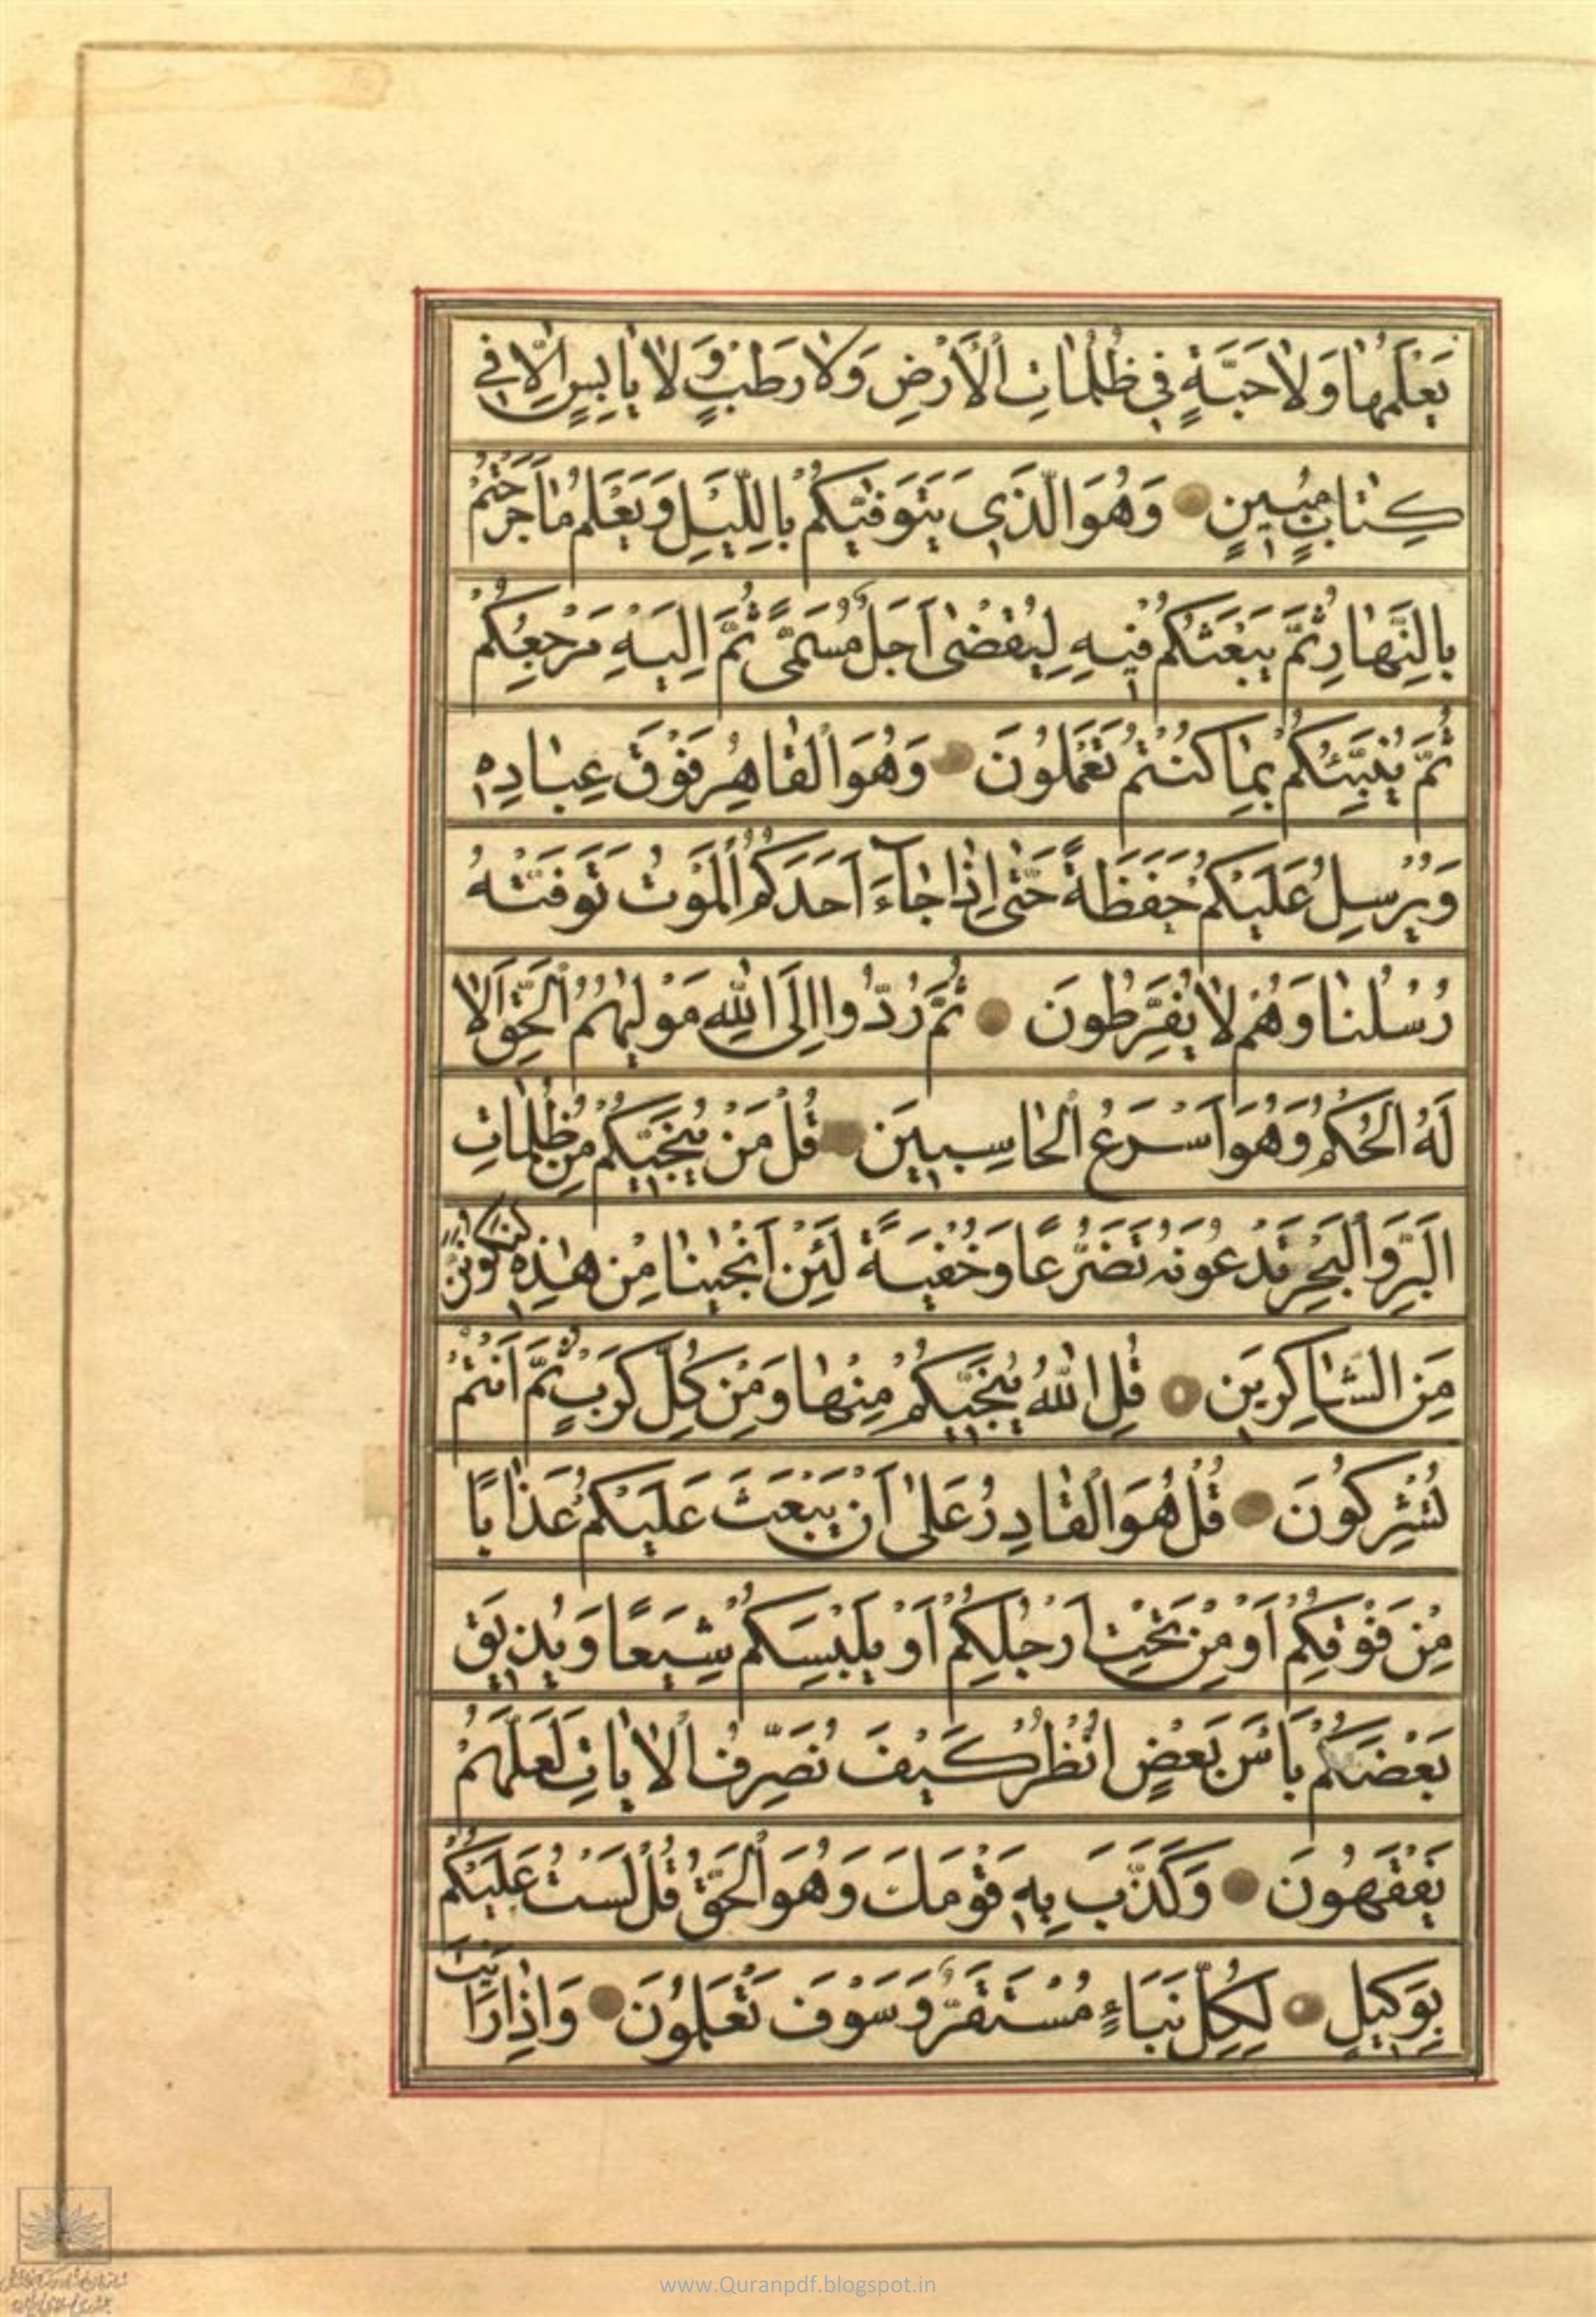 يَعْلَمُهٰا وَلاٰ حَبَّةٍ فِي ظُلُمٰاتِ الْأَرْضِ وَلاٰ رَطْبٍ وَلاٰ يٰابِسٍ اِلّاٰ فِي
كِتٰابٍ مُبِينٍ وَهُوَ الَّذِي يَتَوَفّٰيكُمْ بِاللَّيْلِ وَيَعْلَمُ مٰا جَرَحْتُمْ
بِالنَّهٰارِ ثُمَّ يَبْعَثُكُمْ فِيهِ لِيُقْضٰى اَجَلٌ مُسَمًّى ثُمَّ اِلَيْهِ مَرْجِعُكُمْ
ثُمَّ يُنَبِّئُكُمْ بِمٰا كُنْتُمْ تَعْمَلُونَ وَهُوَ الْقٰاهِرُ فَوْقَ عِبٰادِهِ
وَيُرْسِلُ عَلَيْكُمْ حَفَظَةً حَتّٰى اِذٰا جٰاۤءَ اَحَدَكُمُ الْمَوْتُ تَوَفَّتْهُ
رُسُلُنٰا وَهُمْ لاٰ يُفَرِّطُونَ ثُمَّ رُدُّوا اِلَى اللّٰهِ مَوْلٰيهُمُ الْحَقِّ اَلاٰ
لَهُ الْحُكْمُ وَهُوَ اَسْرَعُ الْحٰاسِبِينَ قُلْ مَنْ يُنَجِّيكُمْ مِنْ ظُلُمٰاتِ
الْبَرِّ وَالْبَحْرِ تَدْعُونَهُ تَضَرُّعًا وَخُفْيَةً لَئِنْ اَنْجٰينٰا مِنْ هٰذِهِ لَنَكُونَنَّ
مِنَ الشّٰاكِرِينَ قُلِ اللّٰهُ يُنَجِّيكُمْ مِنْهٰا وَمِنْ كُلِّ كَرْبٍ ثُمَّ اَنْتُمْ
تُشْرِكُونَ قُلْ هُوَ الْقٰادِرُ عَلٰى اَنْ يَبْعَثَ عَلَيْكُمْ عَذٰابًا
مِنْ فَوْقِكُمْ اَوْ مِنْ تَحْتِ اَرْجُلِكُمْ اَوْ يَلْبِسَكُمْ شِيَعًا وَيُذِيقَ
بَعْضَكُمْ بَأْسَ بَعْضٍ انْظُرْ كَيْفَ نُصَرِّفُ الْاٰيٰاتِ لَعَلَّهُمْ
يَفْقَهُونَ وَكَذَّبَ بِهِ قَوْمُكَ وَهُوَ الْحَقُّ قُلْ لَسْتُ عَلَيْكُمْ
بِوَكِيلٍ لِكُلِّ نَبَاءٍ مُسْتَقَرٌّ وَسَوْفَ تَعْلَمُونَ وَاِذٰا رَاَيْتَ
www.Quranpdf.blogspot.in